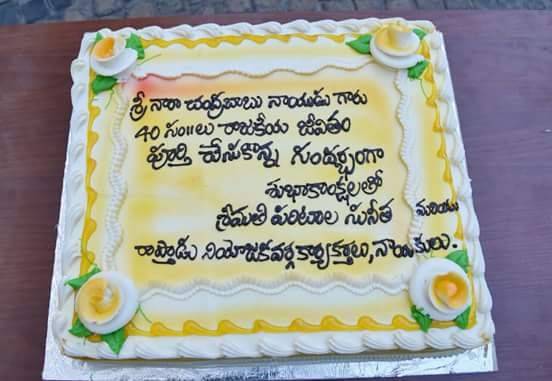 శ్రీ నారా చంద్రబాబు నాయుడు గారు
40 సం॥లు రాజకీయ జీవితం
పూర్తి చేసుకొన్న సందర్భంగా
శుభాకాంక్షలతో
శ్రీమతి పరిటాల సునీత మరియు
రాప్తాడు నియోజకవర్గ కార్యకర్తలు, నాయకులు.